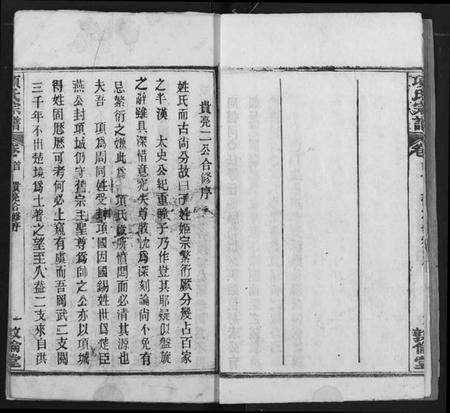 項氏宗譜
卷
敦倫堂
貴亮二公合修序
姓氏而古尚分故曰子姓姬宗繁衍厥分幾占百家
之半漢 太史公紀重瞳子乃作豈其耶疑似盤旋
之辭雖具深惜意究失尊敬忱爲深刻論尚不免有
忌繁衍之嫌此爲 項氏裔所憤悶而必清其源也
夫吾 項爲周同姓受封項國因國錫姓世爲楚臣
燕公封項城仍守舊宗主聖尊爲師之公亦以項城
得姓固歷歷可考何必上窺有虞而吾閩武二支閱
三千年不出楚境爲土著之望至八益二支來自洪
項氏宗譜
卷首
貴亮合修序
一
敦倫堂